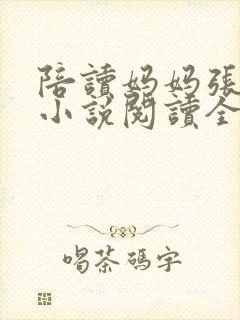 陪讀媽媽張
小說閱讀全
喝茶碼字